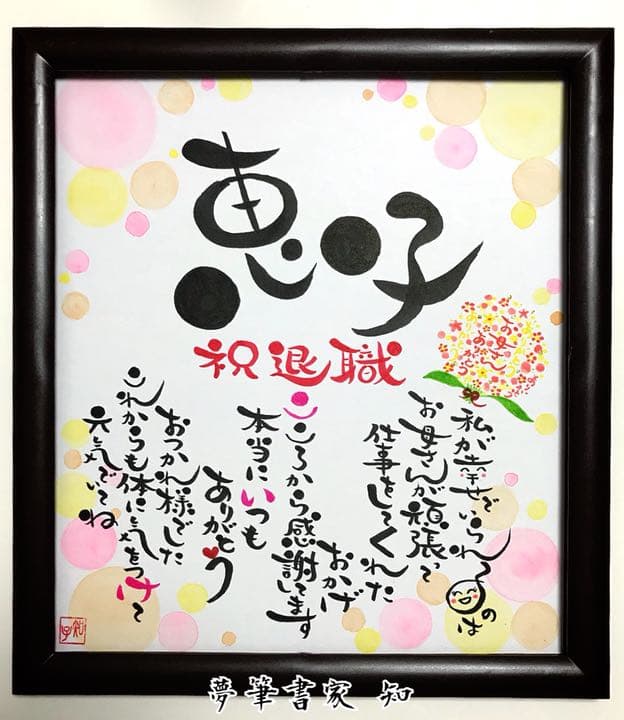 恵子
祝退職
お母さん
私が幸せでいられるのは
お母さんが頑張って
仕事をしてくれた
おかげ
こころから感謝してます
本当にいつも
ありがとう
おつかれ様でした
これからも体に気をつけて
元気でいてね
夢筆書家 知